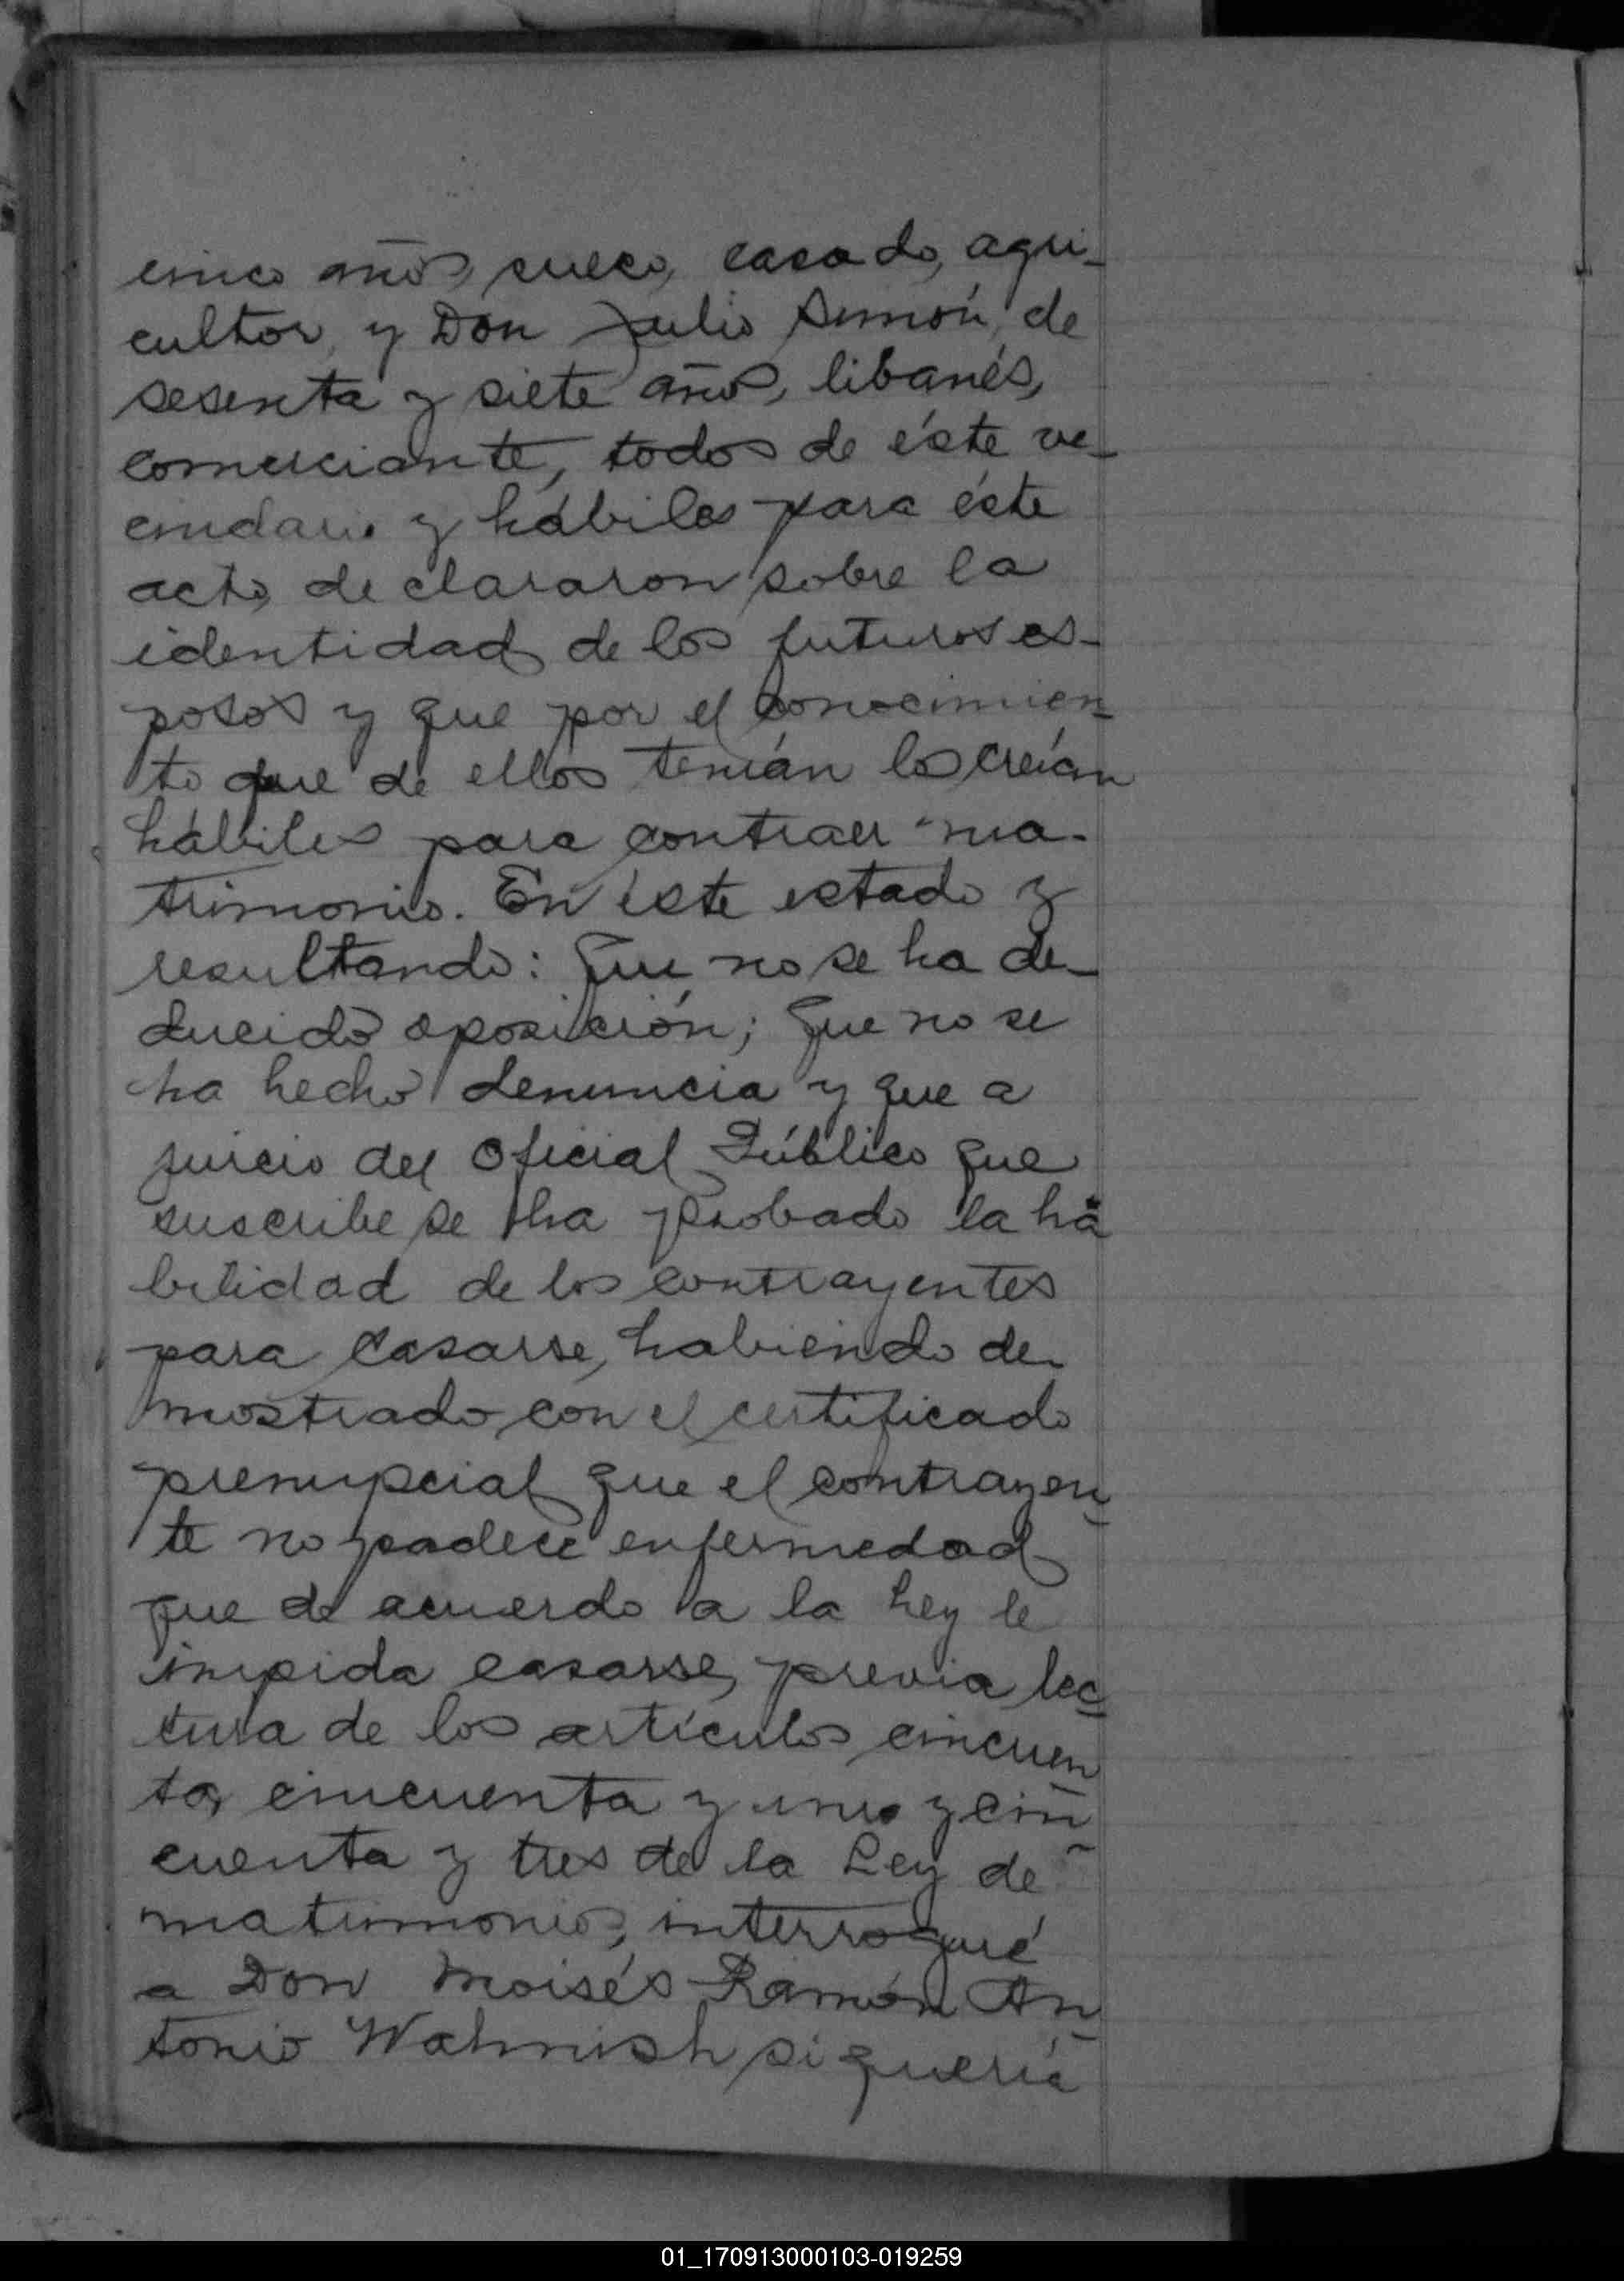 cinco años, sueco, casado, agri-
cultor, y Don Julio Simón, de
sesenta y siete años, libanés,
comerciante, todos de éste ve-
cindario y hábiles para éste
acto, declararon sobre la
identidad de los futuros es-
posos y que por el conocimien-
to que de ellos tenían los creían
hábiles para contraer ma-
trimonio. En éste estado y
resultando: Que no se ha de-
ducido oposición; Que no se
ha hecho denuncia y que a
juicio del Oficial Público que
suscribe se ha probado la ha
bilidad de los contrayentes
para casarse, habiendo de-
mostrado con el certificado
prenupcial que el contrayen-
te no padece enfermedad
que de acuerdo a la Ley le
impida casarse, previa lec-
tura de los artículos cincuen-
ta, cincuenta y uno y cin-
cuenta y tres de la Ley de
matrimonios, interrogué
a Don Moisés Ramón An-
tonio Wahnish si quería
01_170913000103-019259